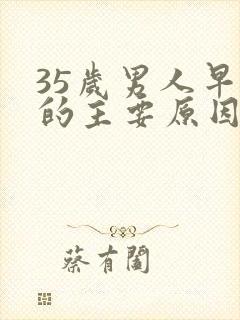 35歲男人早
的主要原因
蔡有闔